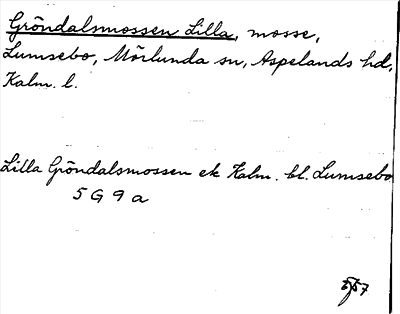 Gröndalsmossen Lilla, mosse,
Lumsebo, Mörlunda sn, Aspelands hd,
Kalm. l.
Lilla Gröndalsmossen ek Kalm. bl. Lumsebo
5 G 9 a
57